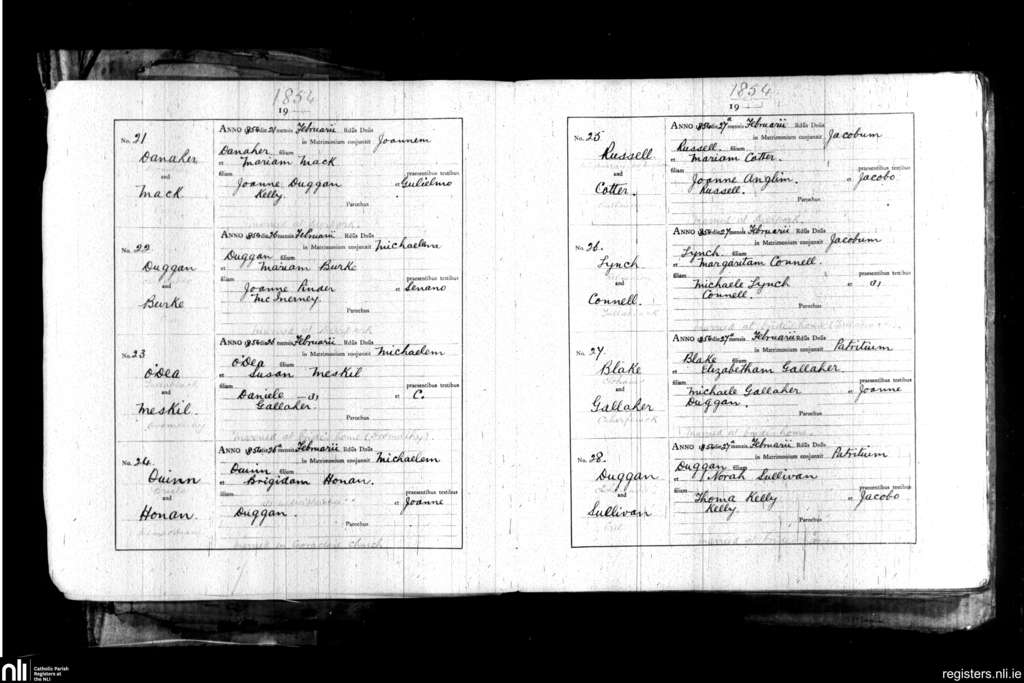 1854
19
No. 21
Danaher
and
Mack
ANNO 1854 die 21 mensis Februarii Rdus Dnus
in Matrimonium conjunxit Joannem
Danaher filium
et Mariam Mack
filiam
praesentibus testibus
Joanne Duggan et Gulielmo
Kelly.
Parochus
married at
No. 22
Duggan
and
Burke
ANNO 1854 die 26 mensis Februarii Rdus Dnus
in Matrimonium conjunxit Michaelem
Duggan filium
et Mariam Burke
filiam
praesentibus testibus
Joanne Pinder et Senano
McInerney.
Parochus
married at
No. 23
O'Dea
and
Meskil.
ANNO 1854 die 26 mensis Februarii Rdus Dnus
in Matrimonium conjunxit Michaelem
O'Dea filium
et Susan Meskil
filiam
praesentibus testibus
Daniele et C.
Gallaher.
Parochus
married at bride's home
No. 24
Quinn
and
Honan.
ANNO 1854 die 26th mensis Februarii Rdus Dnus
in Matrimonium conjunxit Michaelem
Quinn filium
et Brigidam Honan.
filiam
praesentibus testibus
et Joanne
Duggan.
Parochus
married in Church
1854
19
No. 25
Russell
and
Cotter.
ANNO 1854 die 27th mensis Februarii Rdus Dnus
in Matrimonium conjunxit Jacobum
Russell. filium
et Mariam Cotter.
filiam
praesentibus testibus
Joanne Anglim. et Jacobo
Russell.
Parochus
married at
No. 26.
Lynch
and
Connell.
ANNO 1854 die 27 mensis Februarii Rdus Dnus
in Matrimonium conjunxit Jacobum
Lynch. filium
et Margaritam Connell.
filiam
praesentibus testibus
Michaele Lynch et
Connell.
Parochus
married at bride's home
No. 27
Blake
and
Gallaher
ANNO 1854 die 27th mensis Februarii Rdus Dnus
in Matrimonium conjunxit Patritium
Blake filium
et Elizabetham Gallaher.
filiam
praesentibus testibus
Michaele Gallaher et Joanne
Duggan.
Parochus
married at bride's home.
No. 28.
Duggan
and
Sullivan
ANNO 1854 die 27th mensis Februarii Rdus Dnus
in Matrimonium conjunxit Patritium
Duggan filium
et Norah Sullivan
filiam
praesentibus testibus
Thoma Kelly et Jacobo
Kelly.
Parochus
married at bride's home
nli
Catholic Parish
Registers at
the NLI
registers.nli.ie